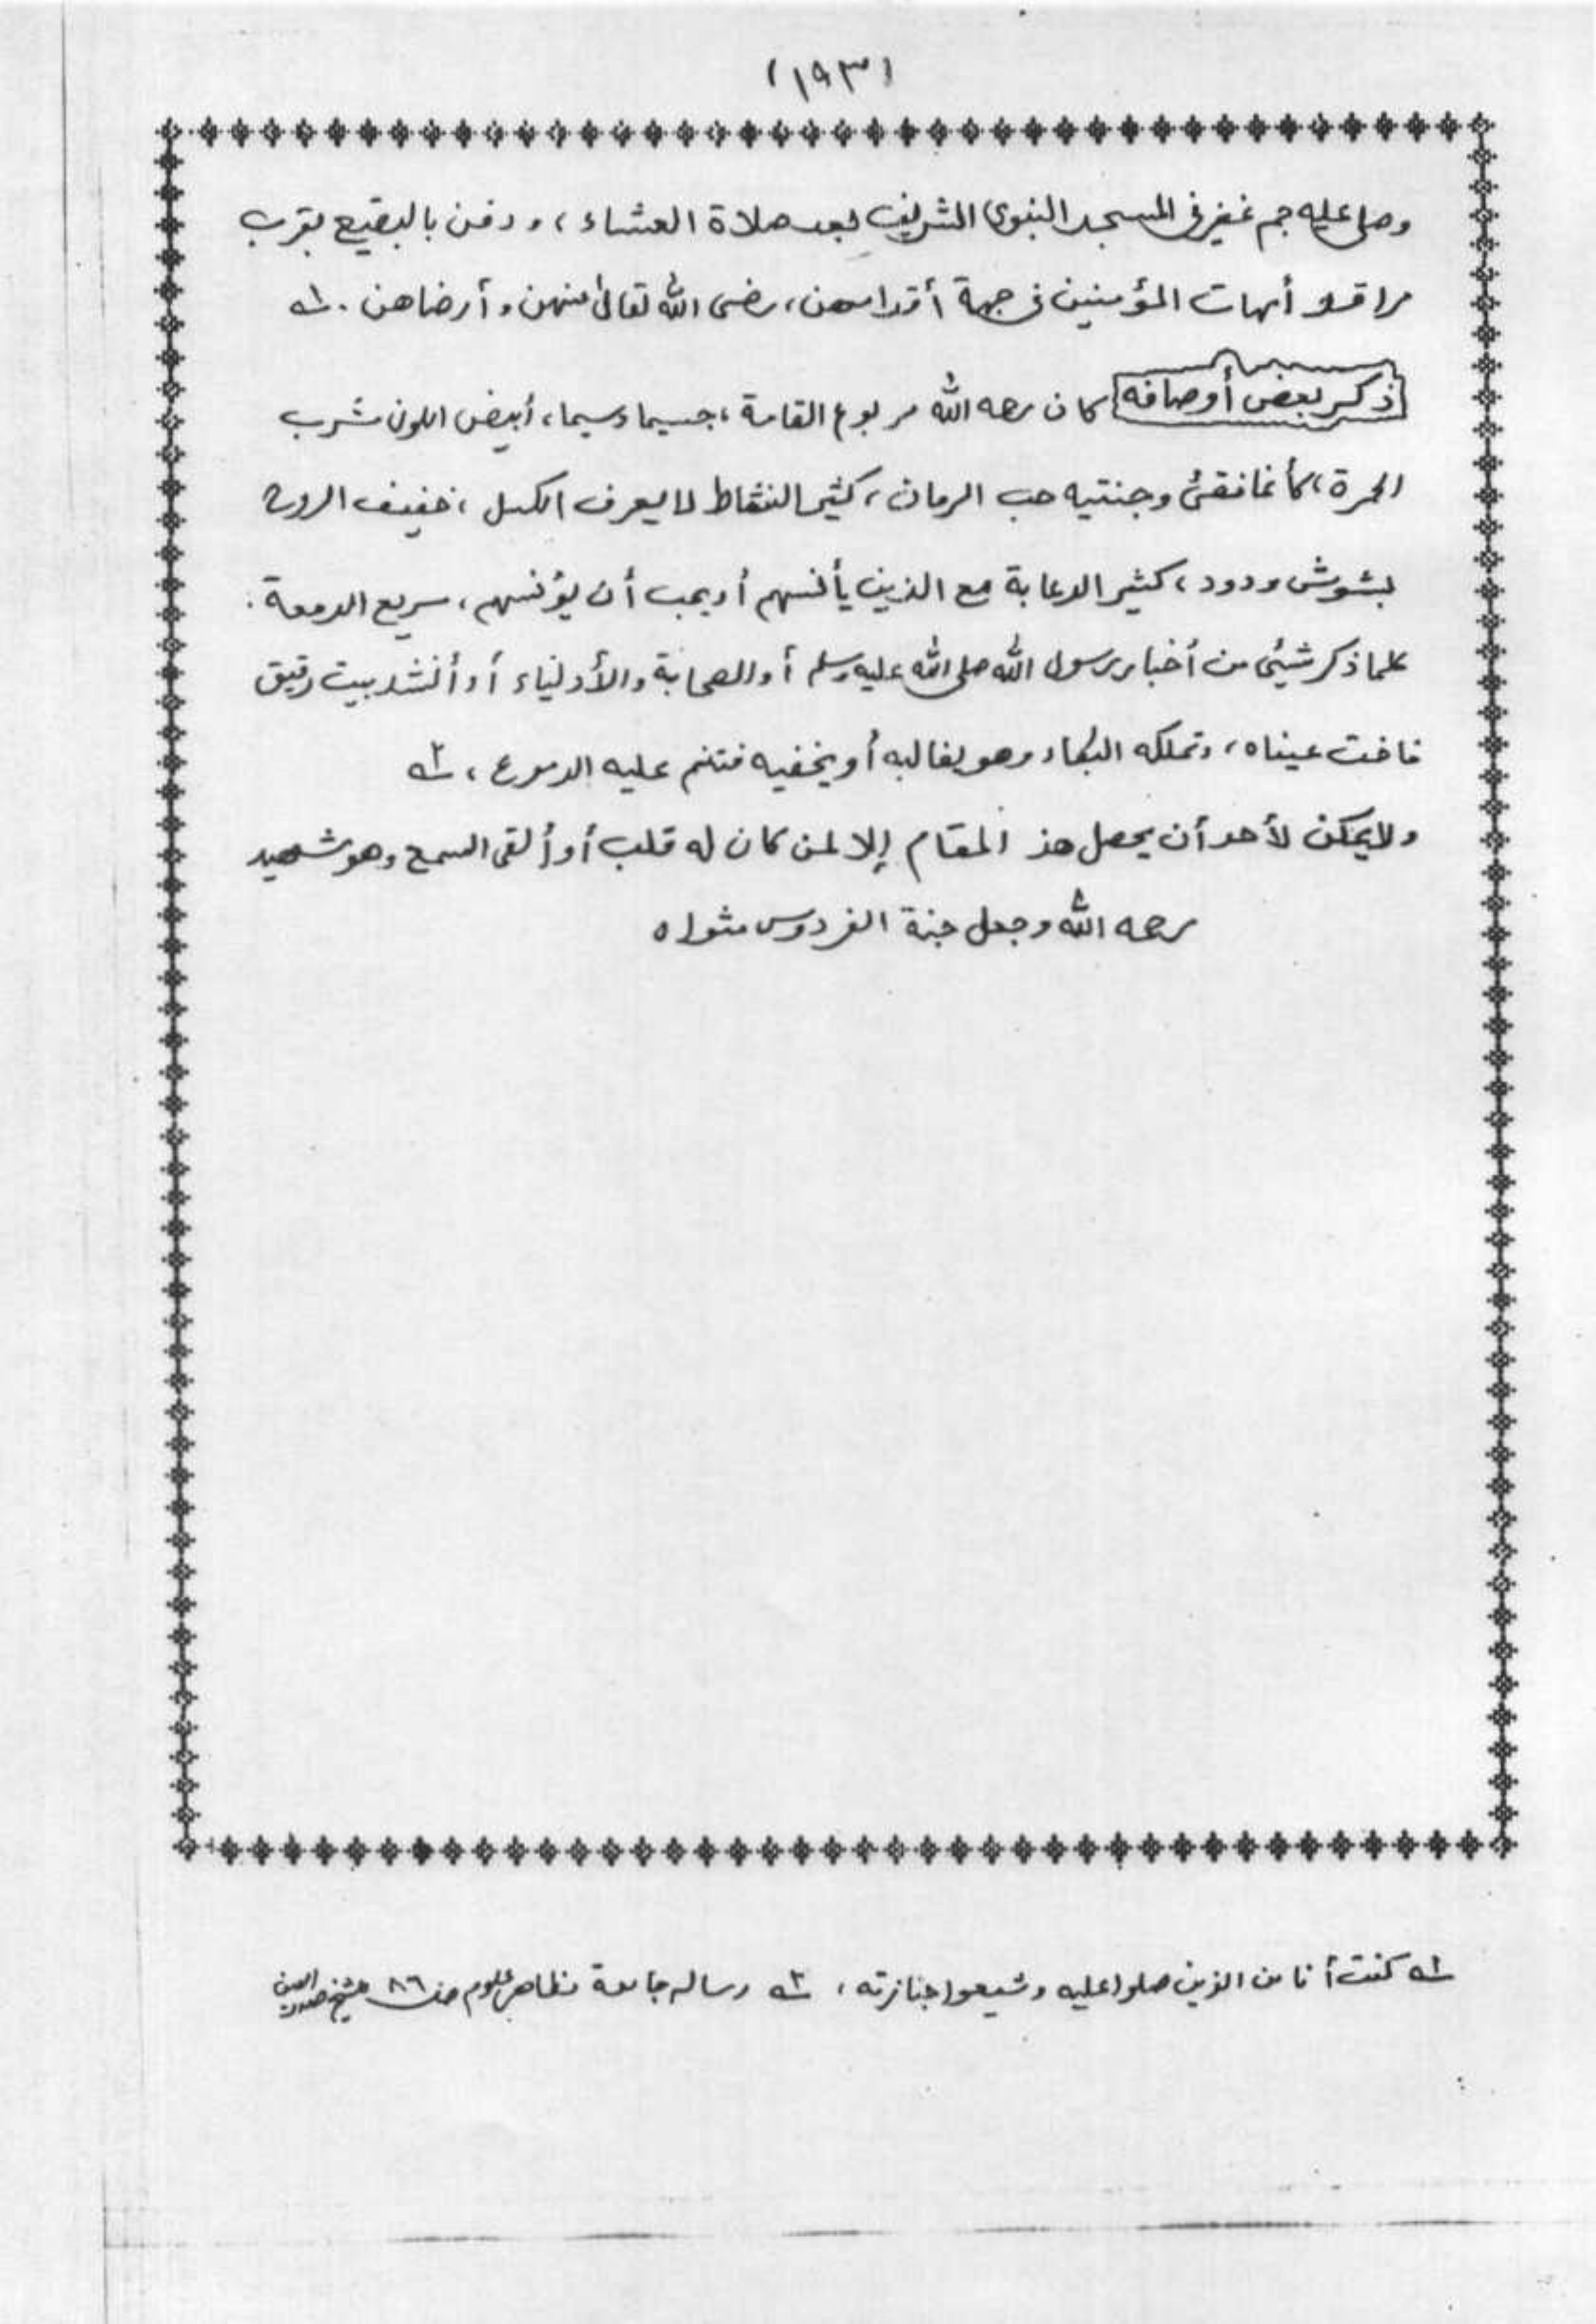 (١٩٣)
وصلى عليه جم غفير فى المسجد النبوى الشريف بعد صلاة العشاء، ودفن بالبقيع بقرب
مراقد أمهات المؤمنين فى جهة أقدامهن، رضى الله تعالىٰ عنهن وأرضاهن. ١ـه
ذكر بعض أوصافه كان رحمه الله مربوع القامة، جسيما وسيما، أبيض اللون مشرب
الحمرة، كأنما فقئ وجنتيه حب الرمان، كثير النشاط لا يعرف الكسل، خفيف الروح
بشوش ودود، كثير الدعابة مع الذين يأنسهم أو يحب أن يؤنسهم، سريع الدمعة.
كلما ذكر شيئى من أخبار رسول الله صلى الله عليه وسلم أو الصحابة والأولياء أو أنشد بيت رقيق
فاضت عيناه، وتملكه البكاء وهو يغالبه أو يخفيه فتنم عليه الدموع، ٢ـه
ولايمكن لأحد أن يحصل هذ المقام إلا لمن كان له قلب أو ألقى السمع وهو شهيد
رحمه الله وجعل جنة الفردوس مثواه
١ـه كنت أنا من الذين صلوا عليه وشيعوا جنازته، ٢ـه رساله جامعة مظاهر علوم صـ ٨٦